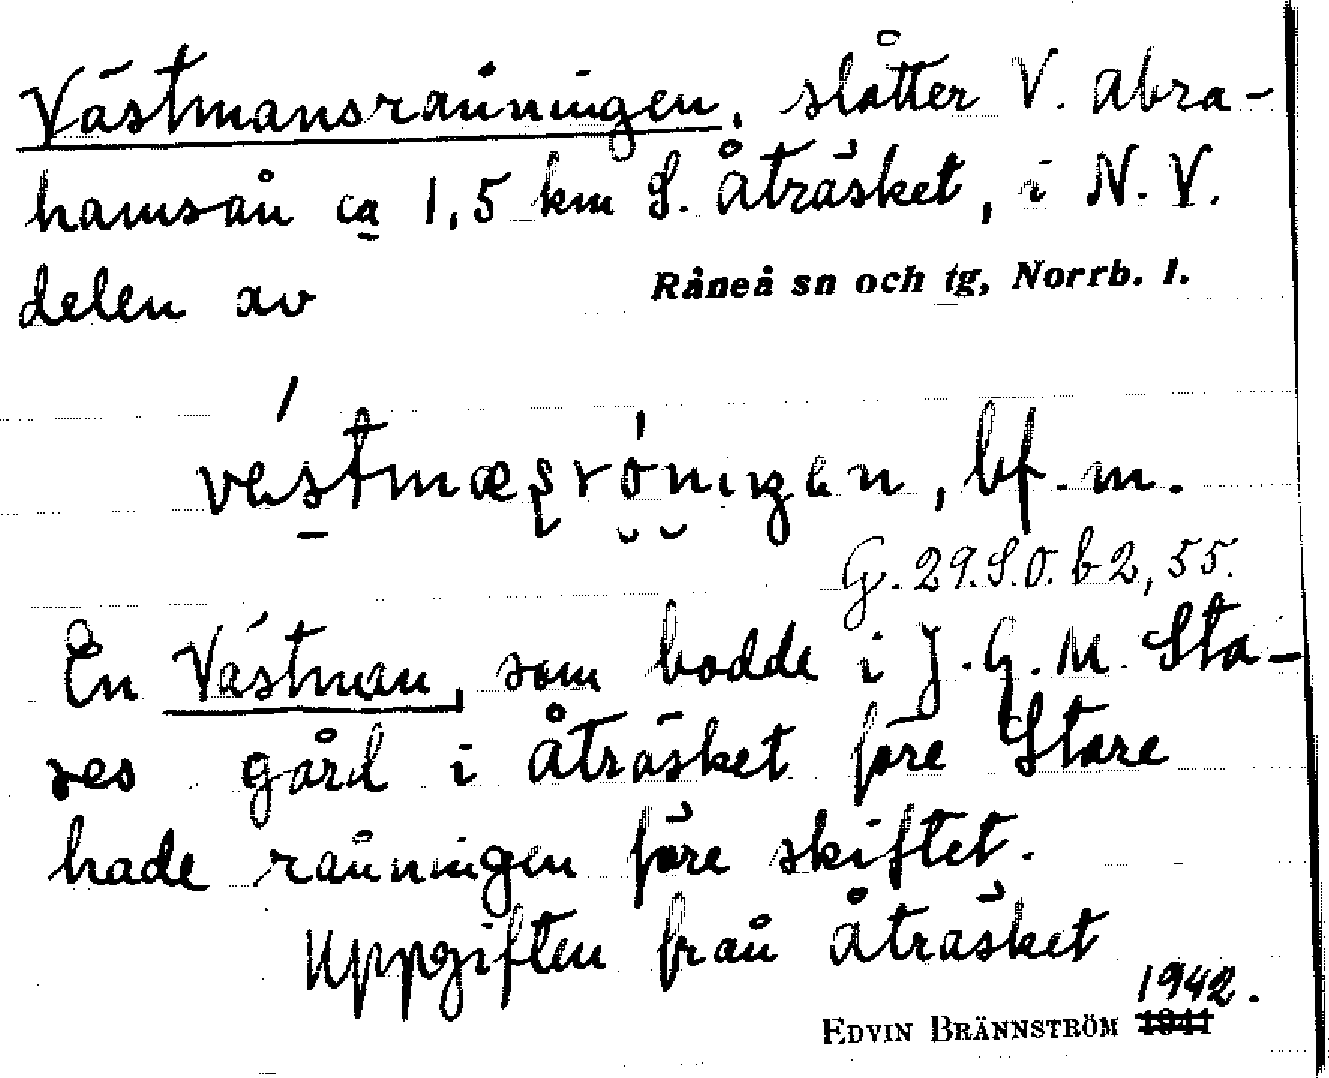 Västmansråningen, slåtter V. Abra-
hamsån ca 1,5 km S. Åträsket, i N. V.
delen av
Råneå sn och tg, Norrb. l.
bf. m.
G. 29.S.O. b 2, 55.
En Västman, som bodde i J. G. M. Sta-
res gård i Åträsket före Stare
hade råningen före skiftet.
Uppgiften från Åträsket
1942.
EDVIN BRÄNNSTRÖM 1941